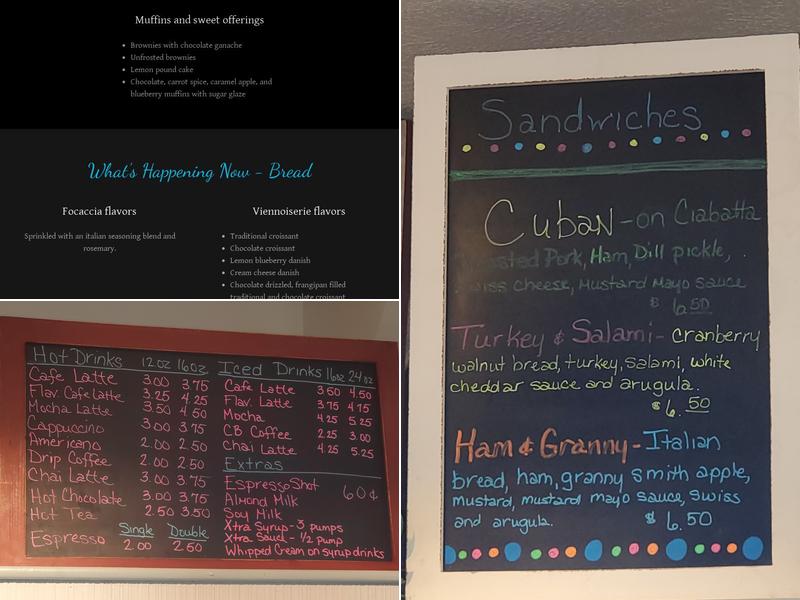 Muffins and sweet offerings
Brownies with chocolate ganache
Unfrosted brownies
Lemon pound cake
Chocolate, carrot spice, caramel apple, and
blueberry muffins with sugar glaze
What's Happening Now - Bread
Focaccia flavors
Sprinkled with an italian seasoning blend and
rosemary.
Viennoiserie flavors
Traditional croissant
Chocolate croissant
Lemon blueberry danish
Cream cheese danish
Chocolate drizzled, frangipan filled
traditional and chocolate croissant
Hot Drinks 12oz 16oz
Cafe Latte 3.00 3.75
Flav. Cafe Latte 3.25 4.25
Mocha Latte 3.50 4.50
Cappuccino 3.00 3.75
Americano 2.00 2.50
Drip Coffee 2.00 2.50
Chai Latte 3.00 3.75
Hot Chocolate 3.00 3.75
Hot Tea 2.50 3.50
Single Double
Espresso 2.00 2.50
Iced Drinks 16oz 24oz
Cafe Latte 3.50 4.50
Flav. Latte 3.75 4.75
Mocha 4.25 5.25
CB Coffee 2.25 3.00
Chai Latte 4.25 5.25
Extras
Espresso Shot
60¢
Almond Milk
Soy Milk
Xtra Syrup - 3 pumps
Xtra Sauce - 1/2 pump
Whipped Cream on syrup drinks
Sandwiches
Cuban - on Ciabatta
Pork, Ham, Dill pickle,
Swiss cheese, Mustard Mayo sauce
$ 6.50
Turkey & Salami - Cranberry
walnut bread, turkey, salami, white
cheddar sauce and arugula.
$ 6.50
Ham & Granny - Italian
bread, ham, granny smith apple,
mustard, mustard mayo sauce, swiss
and arugula. $ 6.50